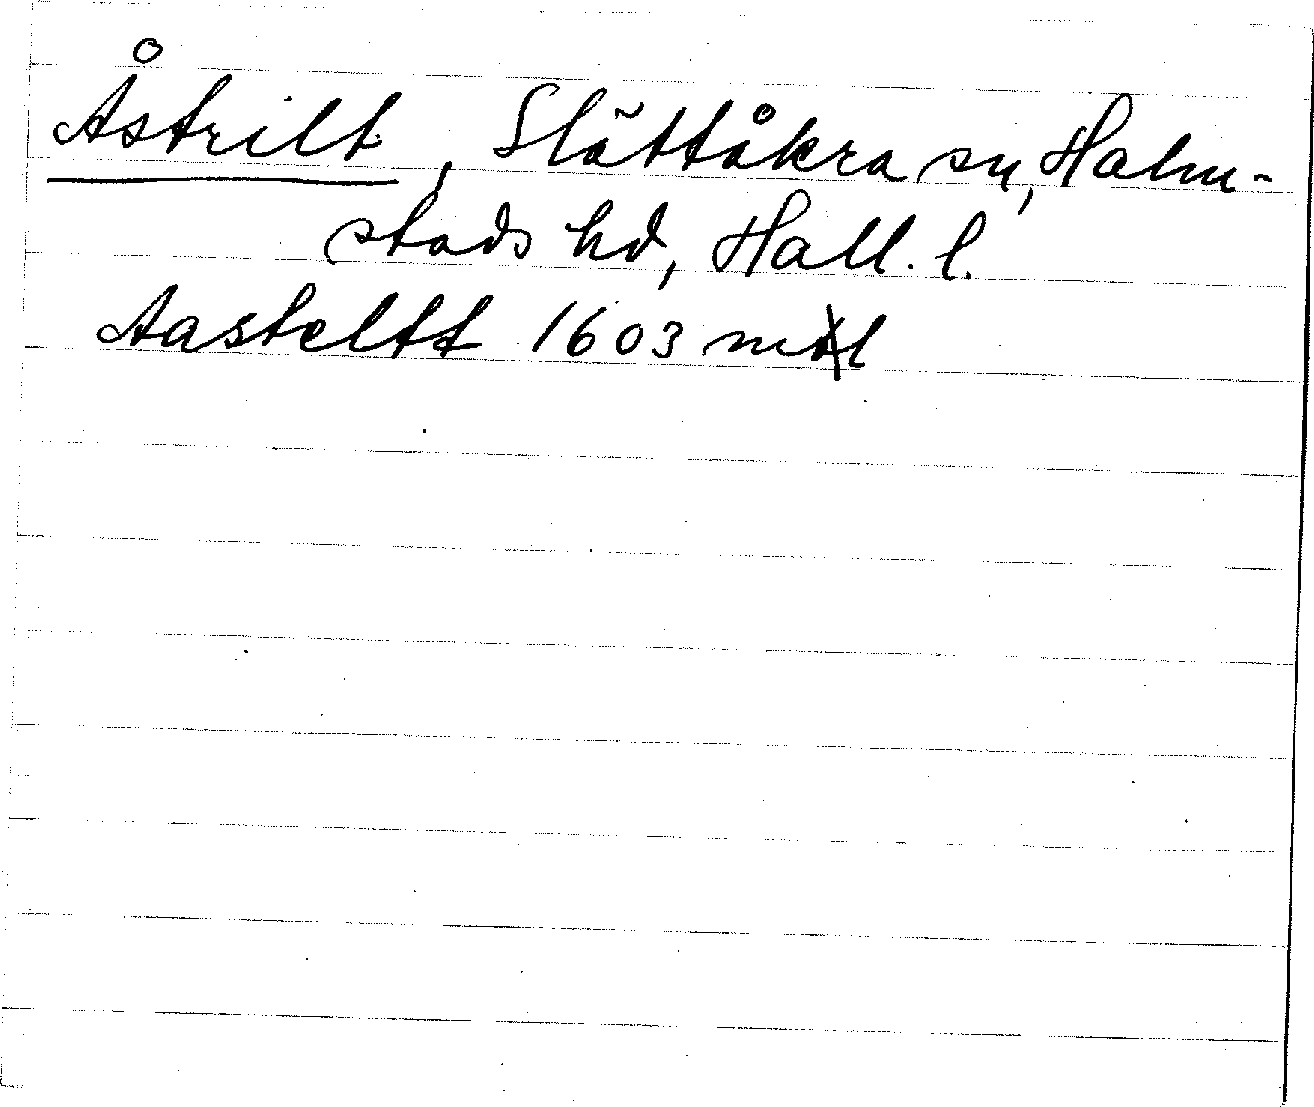 Åstrilt, Slättåkra sn, Halm-
stads hd, Hall. l.
Aasteltt 1603 mtl